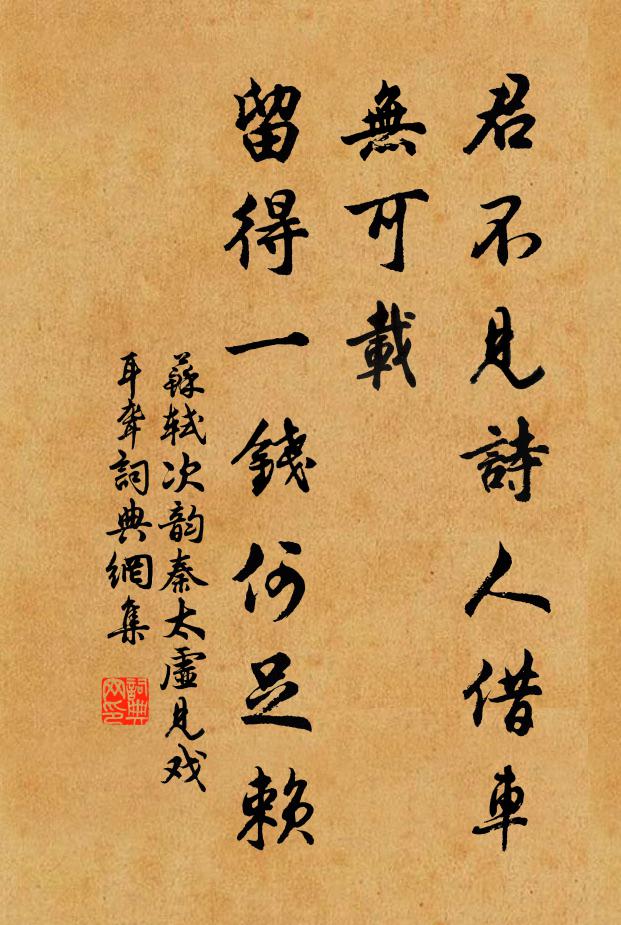 君不見詩人借車
無可載
留得一錢何足賴
蘇軾次韵秦太虛見戏
耳聋詞典網集
詞典
网印